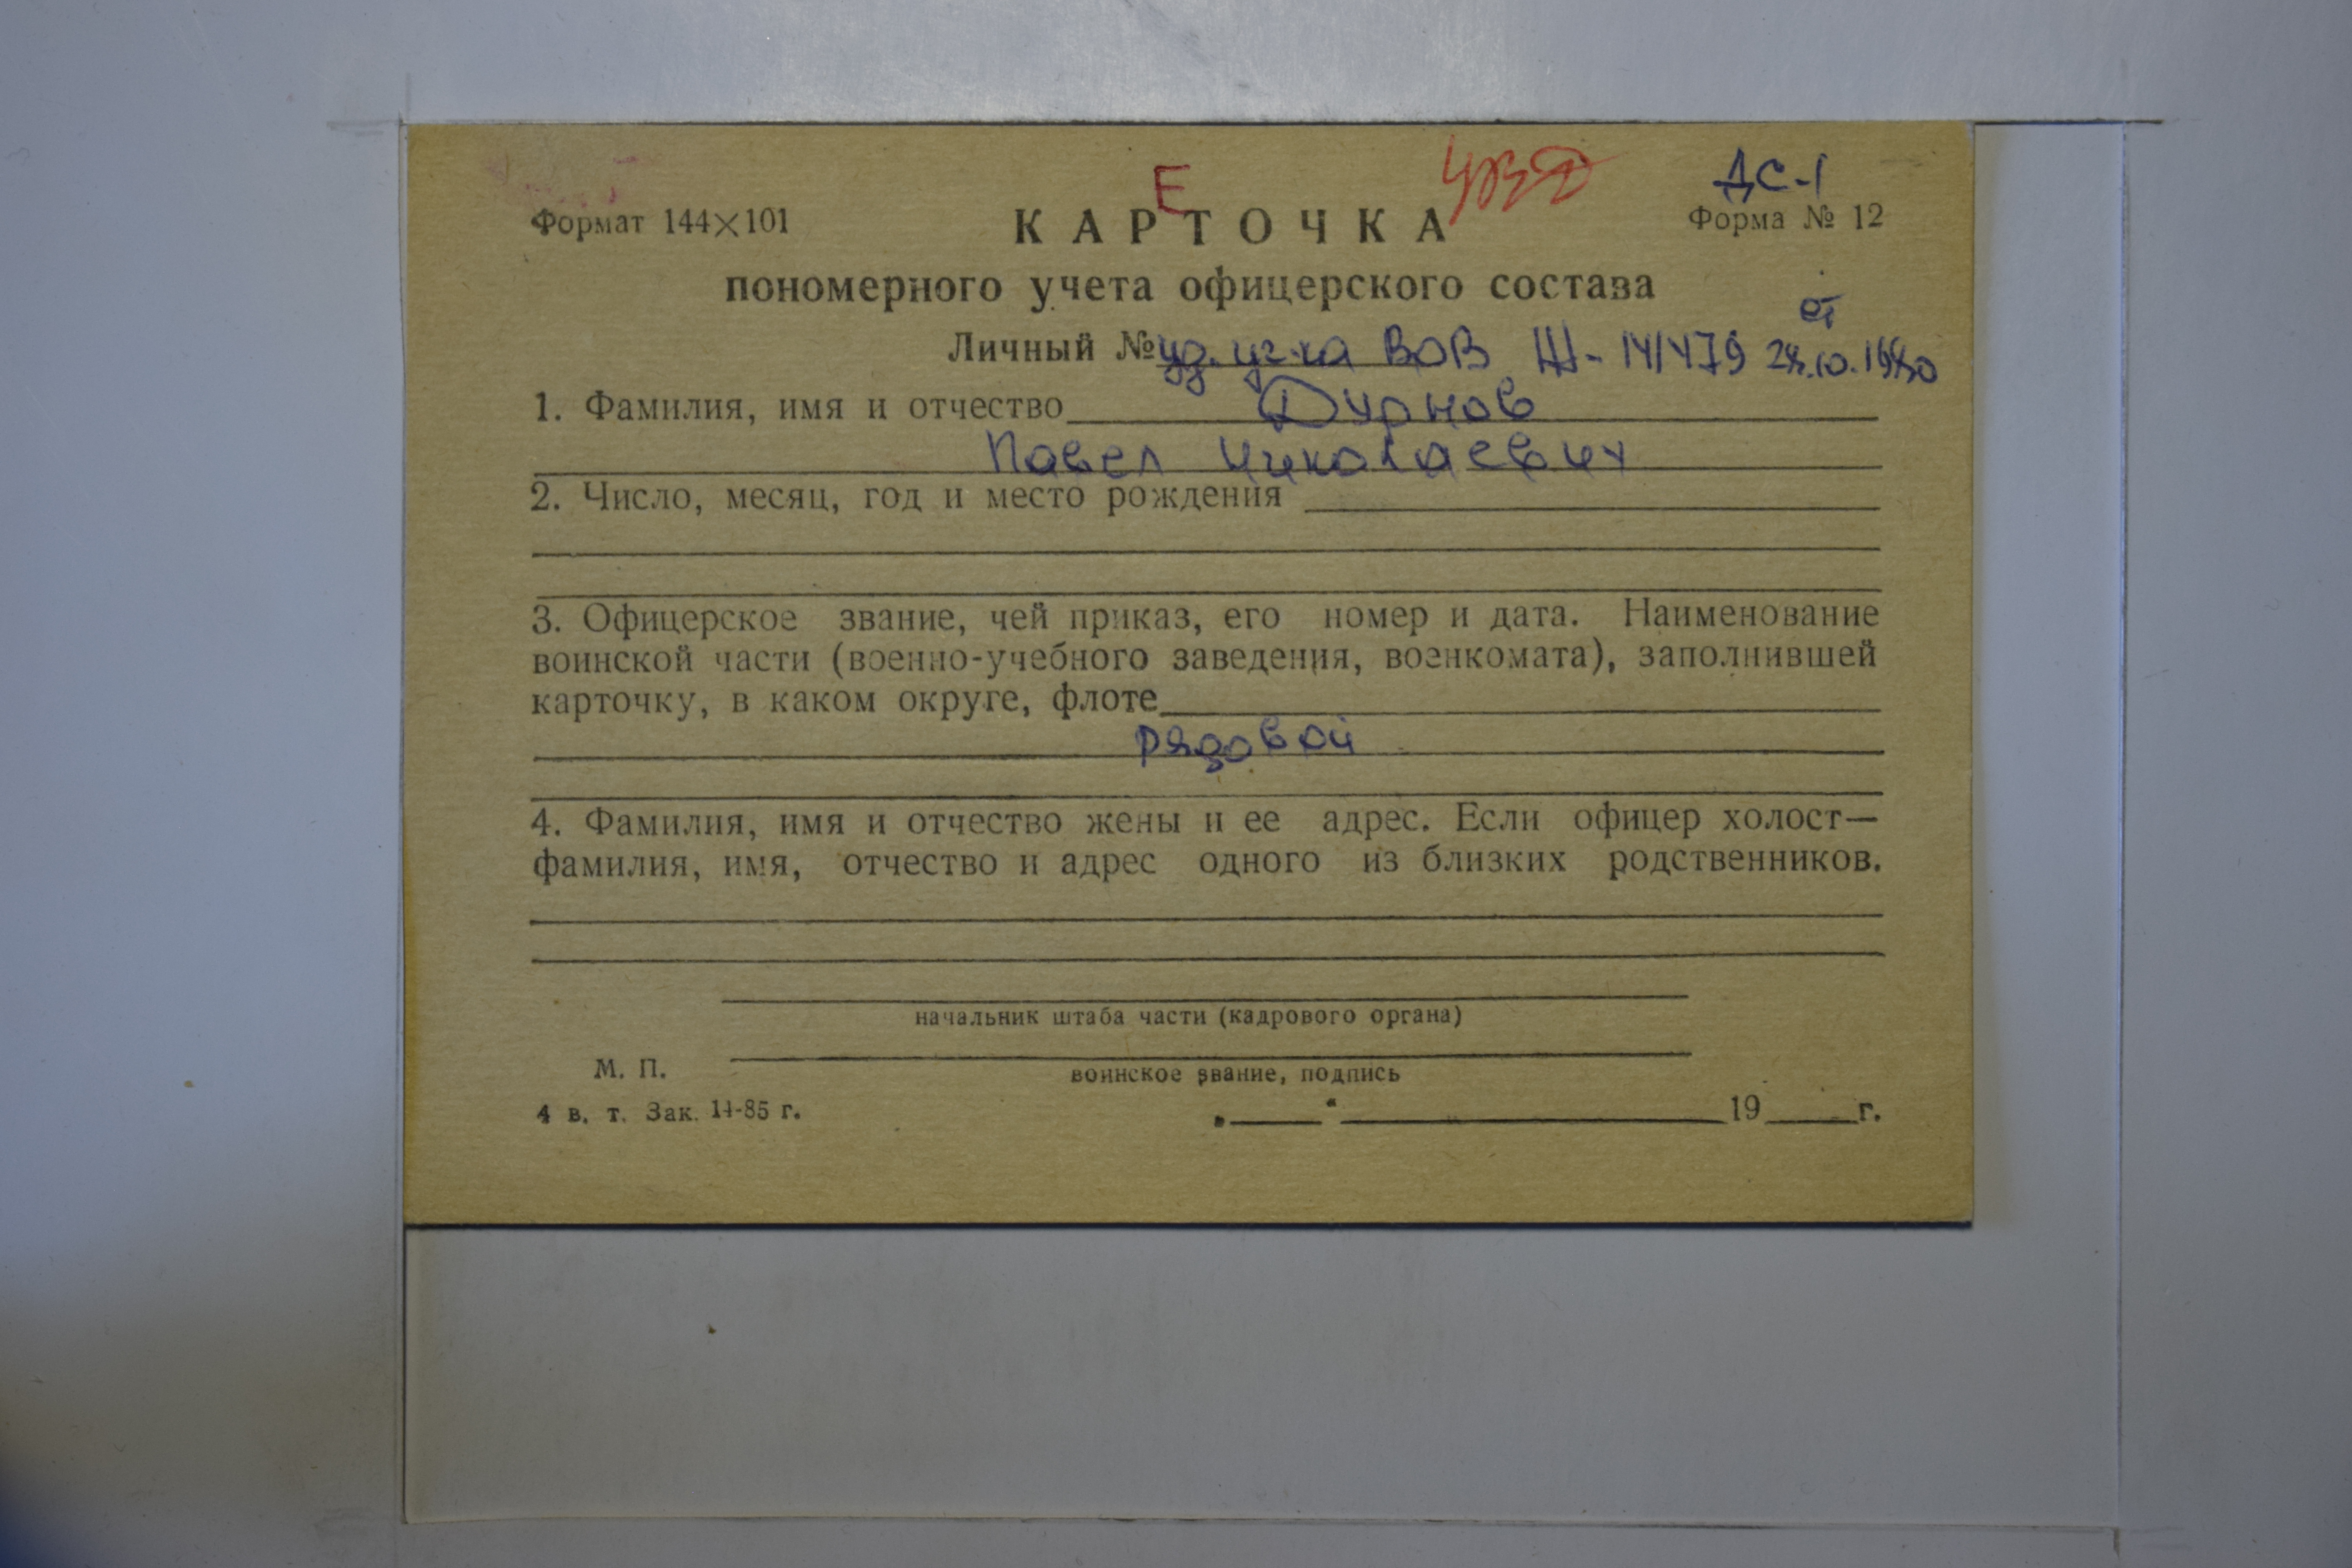 Е
ДС-1
Формат 144×101
КАРТОЧКА
Форма № 12
пономерного учета офицерского состава
от
Личный № уд. уч-ка ВОВ Ш- 141479 28.10.1980
1. Фамилия, имя и отчество Дурнов
Павел Николаевич
2. Число, месяц, год и место рождения
3. Офицерское звание, чей приказ, его номер и дата. Наименование
воинской части (военно-учебного заведения, военкомата), заполнившей
карточку, в каком округе, флоте
рядовой
4. Фамилия, имя и отчество жены и ее адрес. Если офицер холост—
фамилия, имя, отчество и адрес одного из близких родственников.
начальник штаба части (кадрового органа)
М. П.
воинское звание, подпись
4 в. т. Зак. 14-85 г.
„ “ 19 г.